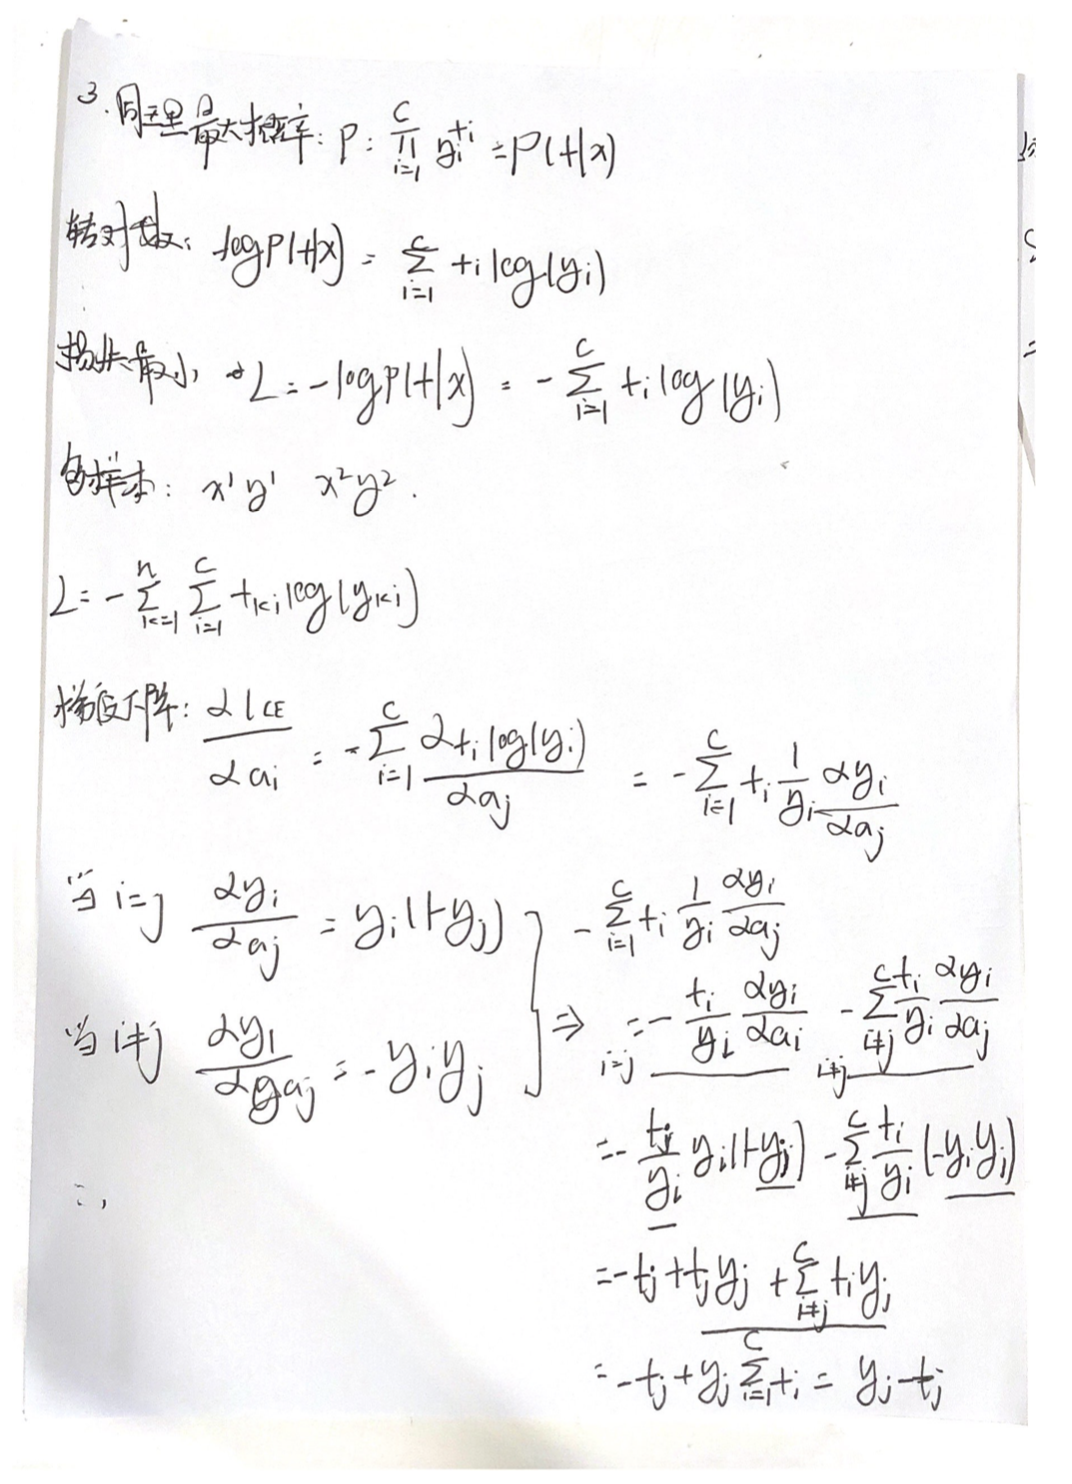 3. 同理最大概率: P: ∏_{i=1}^{C} y_i^{t_i} = P(t|x)
转对数: log P(t|x) = ∑_{i=1}^{C} t_i log(y_i)
损失最小 → L = -log P(t|x) = -∑_{i=1}^{C} t_i log(y_i)
样本: x¹ y¹ x² y².
L = -∑_{k=1}^{n} ∑_{i=1}^{C} t_{ki} log(y_{ki})
梯度下降: ∂l_{CE}/∂a_i = -∑_{i=1}^{C} ∂t_i log(y_i)/∂a_j = -∑_{i=1}^{C} t_i 1/y_i ∂y_i/∂a_j
当 i=j ∂y_i/∂a_j = y_i(1-y_j)
当 i≠j ∂y_i/∂a_j = -y_i y_j
⇒ -∑_{i=1}^{C} t_i 1/y_i ∂y_i/∂a_j
= - t_i/y_i ∂y_i/∂a_i - ∑_{i≠j}^{C} t_i/y_i ∂y_i/∂a_j
i=j i≠j
= - t_j/y_i y_i(1-y_j) - ∑_{i≠j}^{C} t_i/y_i (-y_i y_j)
= -t_j + t_j y_j + ∑_{i≠j}^{C} t_i y_j
= -t_j + y_j ∑_{i=1}^{C} t_i = y_j - t_j